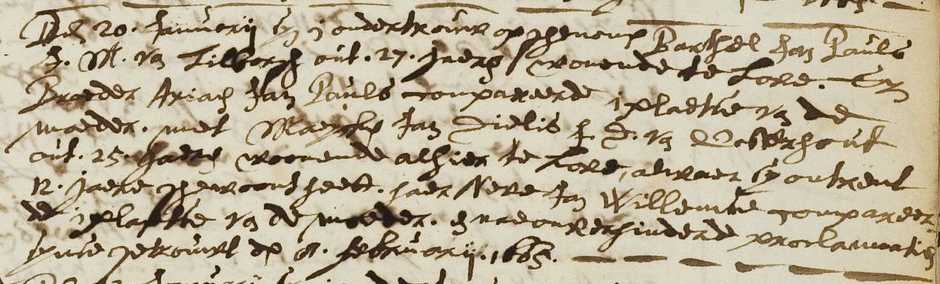 Den 20. Januarij is in ondertrouw opgenomen Barthel Jan Pauls
J. M. van Tilborch out. 27. Jaeren woonende te Lone. Sijn
Broeder Ariaen Jan Pauls compareerde in plaetse van de
moeder. met Mayken Jan Dielis J. D. van Oosterhout
out. 25. Jaeren woonende alhier te Lone, alwaer sij ontrent
12. jaere gewoont heeft. haer Neve Jan Willemse compareer-
de in plaetse van de moeder. en nae onverhinderde proclamatien
sijnse getrouwt den 8. Februarij. 1665.